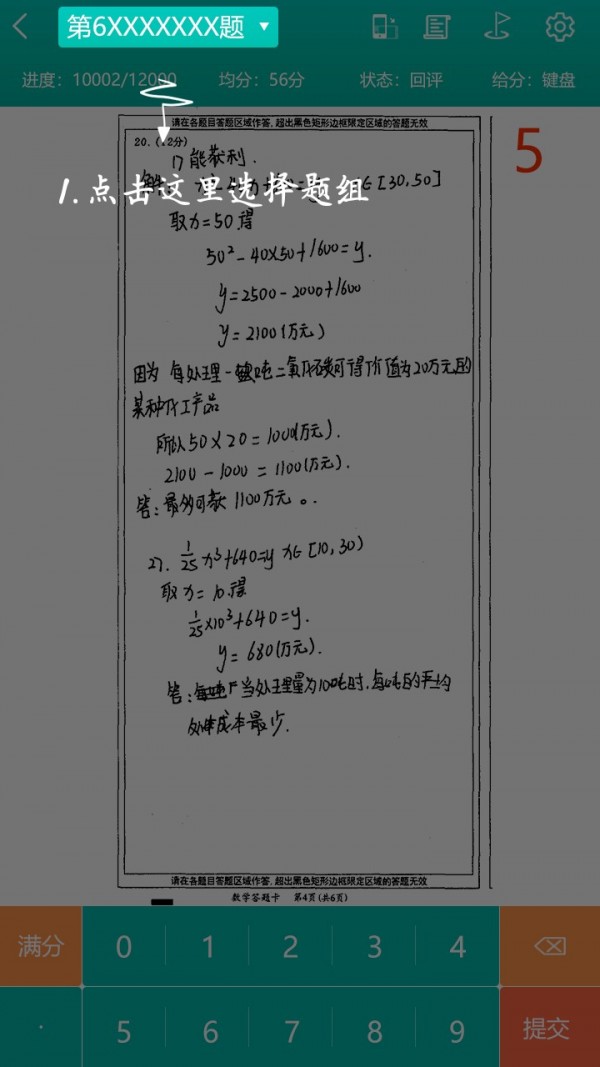 第6XXXXXXX题
进度：10002/12000 均分：56分 状态：回评 给分：键盘
请在各题目答题区域作答,超出黑色矩形边框限定区域的答题无效
5
20.(12分)
1.点击这里选择题组
1) 能获利.
∈[30,50]
取x=50得
50²-40×50+1600=y.
y=2500-2000+1600
y=2100(万元)
因为 每处理一吨二氧化碳可得价值为20万元的
某种化工产品
所以50×20=1000(万元).
2100-1000=1100(万元).
答:最多可获1100万元。
27. 1/25x³+640=y x∈[10,30)
取x=10.得
1/25×10³+640=y.
y=680(万元).
答:当处理量为10吨时,每吨的平均
处理成本最少.
请在各题目答题区域作答,超出黑色矩形边框限定区域的答题无效
数学答题卡 第4页(共6页)
满分 0 1 2 3 4
. 5 6 7 8 9 提交